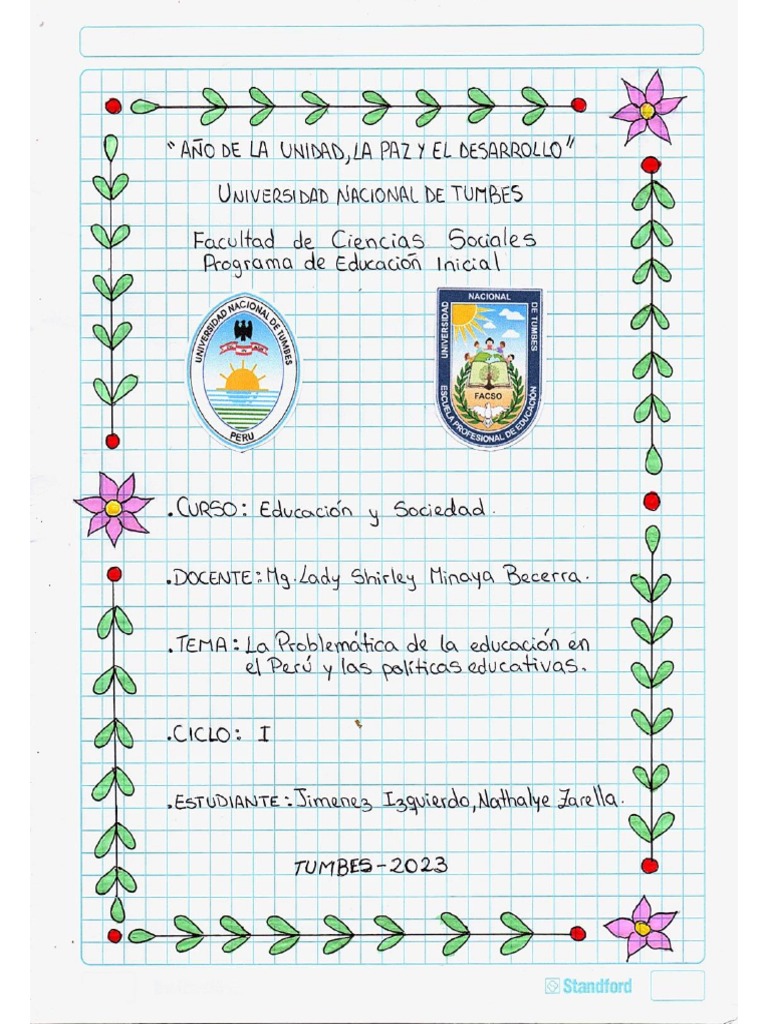 "AÑO DE LA UNIDAD, LA PAZ Y EL DESARROLLO"
UNIVERSIDAD NACIONAL DE TUMBES
Facultad de Ciencias Sociales
Programa de Educación Inicial
UNIVERSIDAD NACIONAL DE TUMBES
PERU
UNIVERSIDAD NACIONAL DE TUMBES
FACSO
ESCUELA PROFESIONAL DE EDUCACIÓN
.CURSO: Educación y Sociedad.
.DOCENTE: Mg. Lady Shirley Minaya Becerra.
.TEMA: La Problemática de la educación en
el Perú y las políticas educativas.
.CICLO: I
.ESTUDIANTE: Jimenez Izquierdo, Nathalye Zarella.
TUMBES-2023
Standford